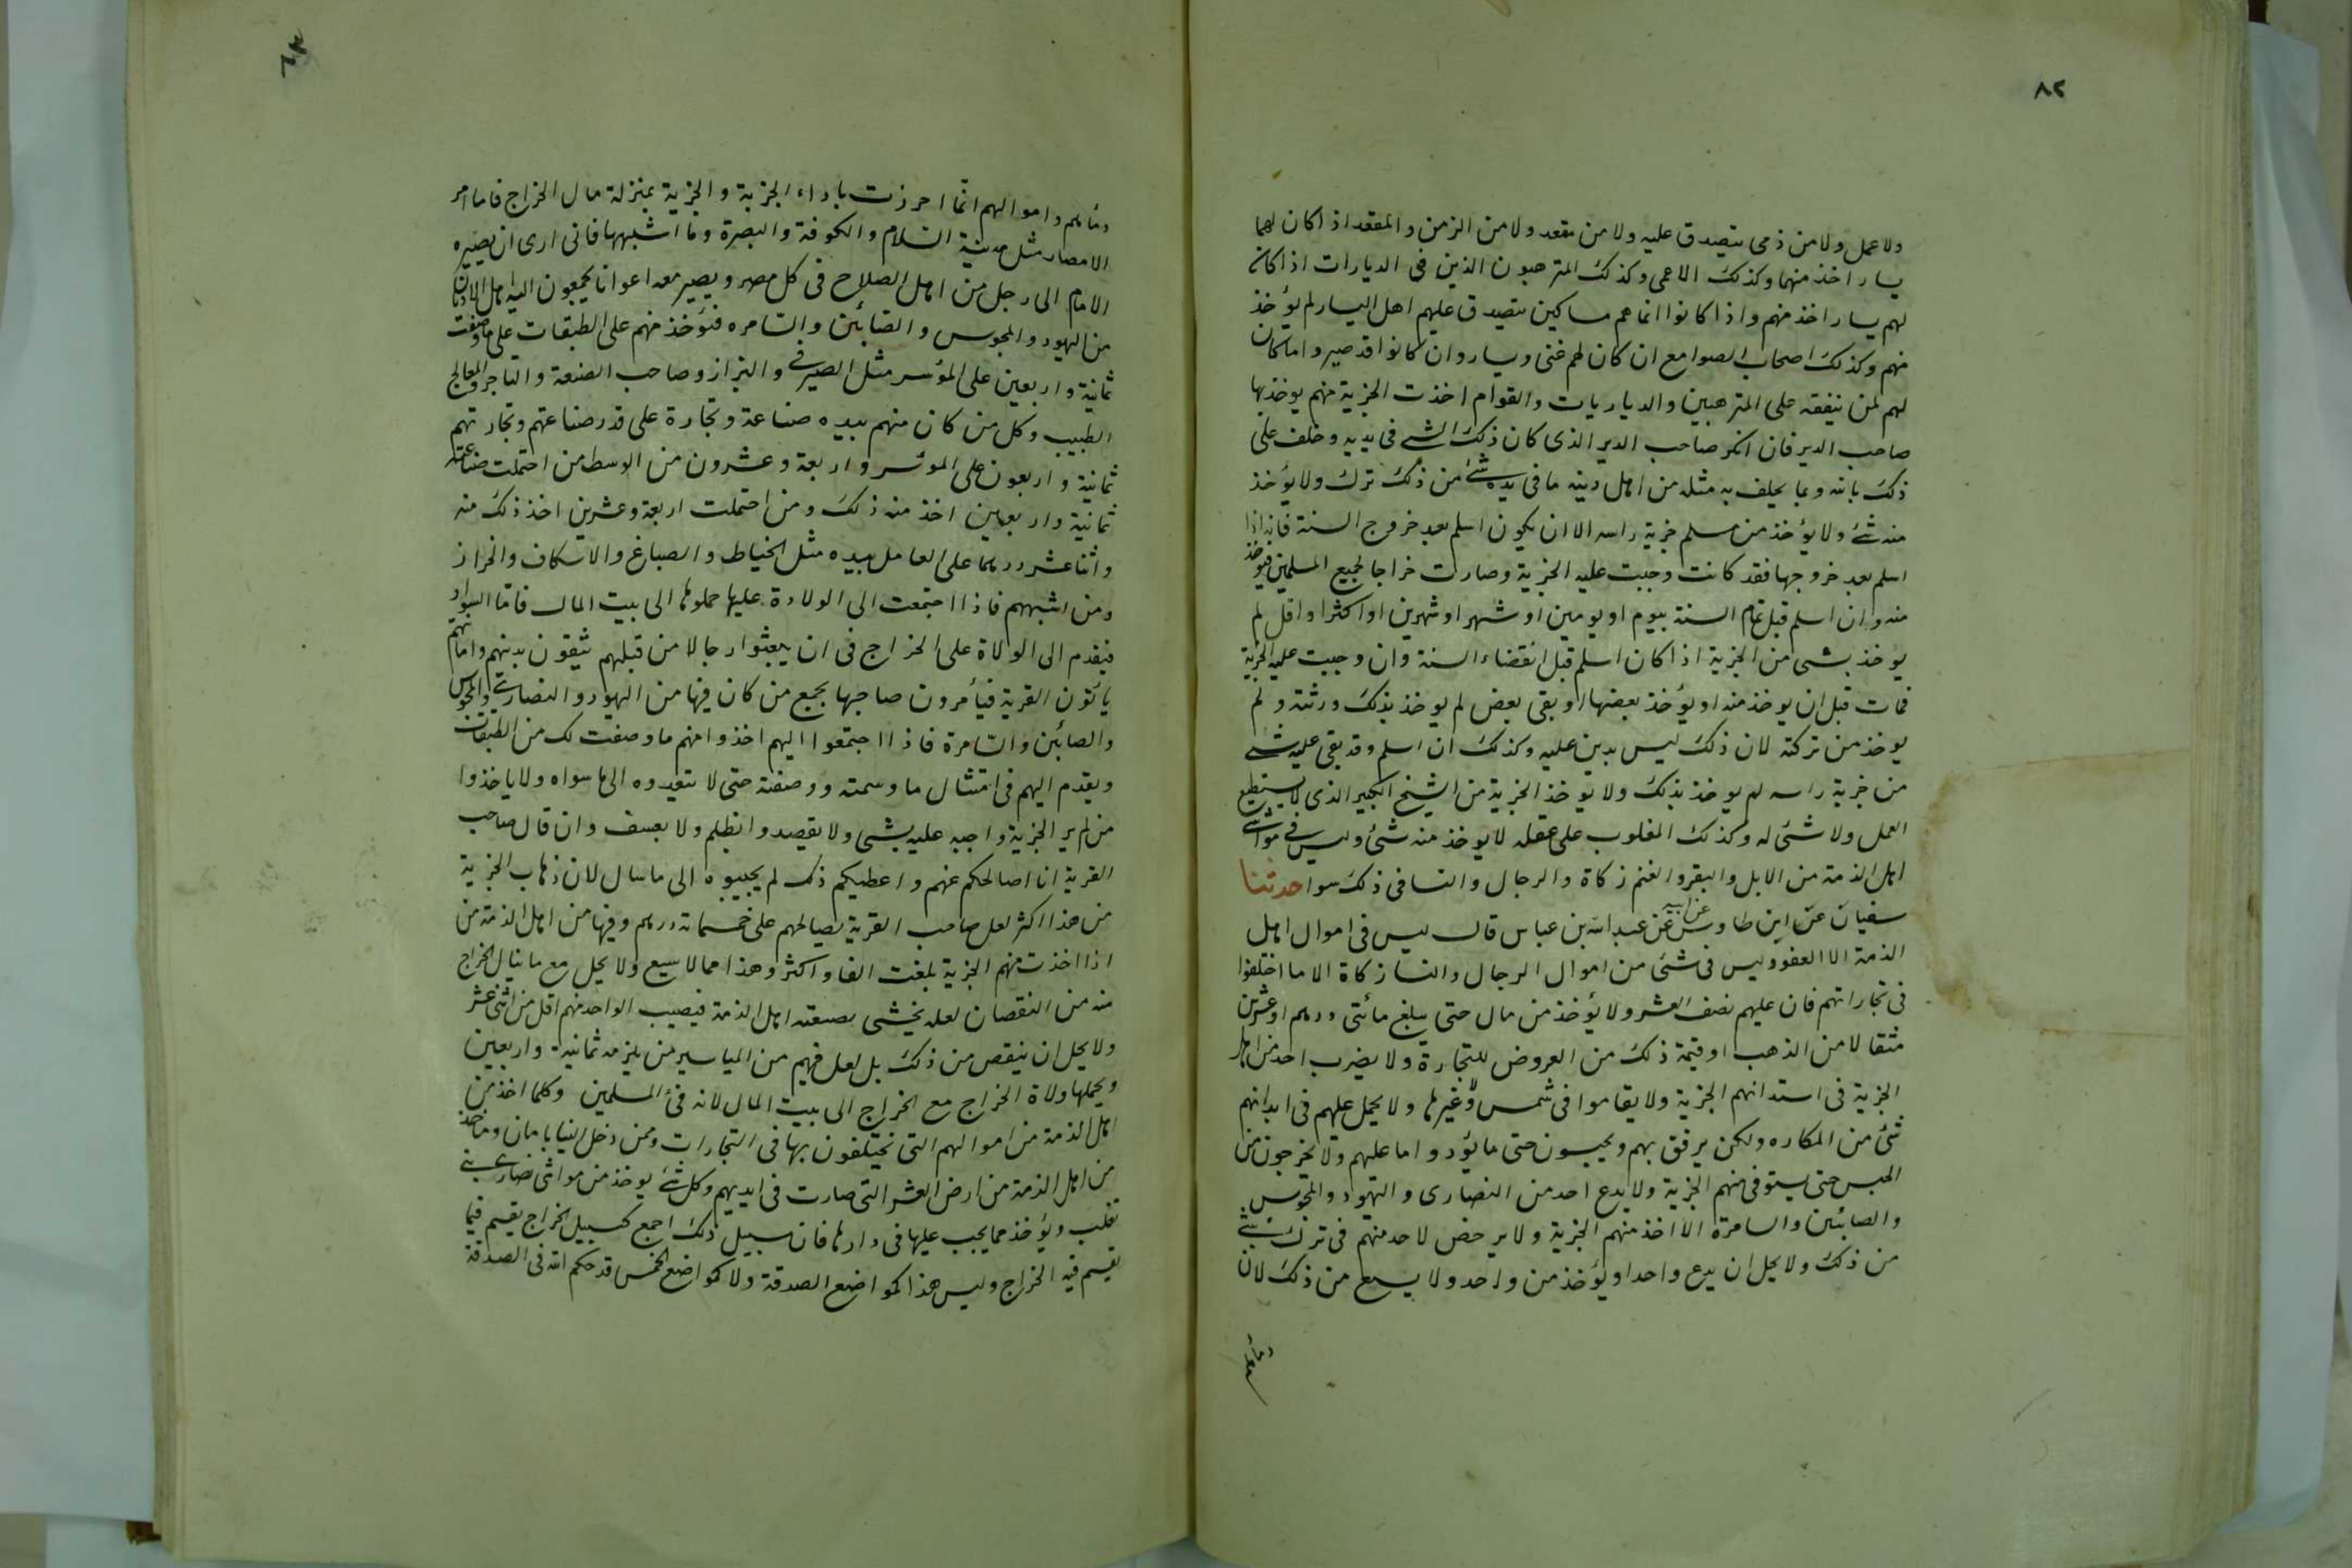 ٨٢
ولا عمل ولا من ذمى يتصدق عليه ولا من مقعد ولا من الزمن والمقعد اذا كان لهما
يسار اخذ منهما وكذلك الاعمى وكذلك المترهبون الذين فى الديارات اذا كان
لهم يسار اخذ منهم واذا كانوا انما هم مساكين يتصدق عليهم اهل اليسار لم يؤخذ
منهم وكذلك اصحاب الصوامع ان كان لهم غنى ويسار وان كانوا قد صيروا ما كان
لهم لمن ينفقه على المترهبين والدياريات والقوام اخذت الجزية منهم يوخذ بها
صاحب الدير فان انكر صاحب الدير الذى كان ذلك الشئ فى يديه وحلف على
ذلك بالله وبما يحلف به مثله من اهل دينه ما فى يده شئ من ذلك ترك ولا يؤخذ
منه شئ ولا يؤخذ من مسلم جزية راسه الا ان يكون اسلم بعد خروج السنة فانه اذا
اسلم بعد خروجها فقد كانت وجبت عليه الجزية وصارت خراجا لجميع المسلمين فيوخذ
منه وان اسلم قبل تمام السنة بيوم او يومين او شهر او شهرين او اكثر او اقل لم
يوخذ بشى من الجزية اذا كان اسلم قبل انقضاء السنة وان وجبت عليه الجزية
فمات قبل ان يوخذ منه او يؤخذ بعضها او بقى بعض لم يوخذ بذلك ورثته ولم
يوخذ من تركته لان ذلك ليس بدين عليه وكذلك ان اسلم وقد بقى عليه شئ
من جزية راسه لم يوخذ بذلك ولا توخذ الجزية من الشيخ الكبير الذى لا يستطيع
العمل ولا شئ له وكذلك المغلوب على عقله لا يوخذ منه شئ وليس فى مواشى
اهل الذمة من الابل والبقر والغنم زكاة والرجال والنسا فى ذلك سوا حدثنا
سفيان عن ابن طاوس عن ابيه عن عبد الله بن عباس قال ليس فى اموال اهل
الذمة الا العفو وليس فى شئ من اموال الرجال والنسا زكاة الا ما اختلفوا
فى تجاراتهم فان عليهم نصف العشر ولا يؤخذ من مال حتى يبلغ مائتى درهم او عشرين
مثقالا من الذهب او قيمة ذلك من العروض للتجارة ولا يضرب احد من اهل
الجزية فى استدانهم الجزية ولا يقاموا فى شمس ولا غيرها ولا يحمل عليهم فى ابدانهم
شئ من المكاره ولكن يرفق بهم ويحبسون حتى ما يؤدوا ما عليهم ولا يخرجون من
الحبس حتى يستوفى منهم الجزية ولا يدع احد من النصارى واليهود والمجوس
والصابئين والسامرة الا اخذ منهم الجزية ولا يرخص لاحد منهم فى ترك شئ
من ذلك ولا يحل ان يدع واحدا ويؤخذ من واحد ولا يسع من ذلك لان
دماءهم واموالهم انما احرزت باداء الجزية والجزية بمنزلة مال الخراج فاما امر
الامصار مثل مدينة السلام والكوفة والبصرة وما اشبهها فانى ارى ان يصيره
الامام الى رجل من اهل الصلاح فى كل مصر ويصير معه اعوانا يجمعون اليه اهل الاديان
من اليهود والمجوس والصابئين والسامره فتؤخذ منهم على الطبقات على ما وصفت
ثمانية واربعين على المؤسر مثل الصيرفى والبزاز وصاحب الصنعة والتاجر والمعالج
الطبيب وكل من كان منهم بيده صناعة وتجارة على قدر صناعتهم وتجارتهم
ثمانية واربعون على المؤسر واربعة وعشرون من الوسط من احتملت صناعته
ثمانية واربعين اخذ منه ذلك ومن احتملت اربعة وعشرين اخذ ذلك منه
واثنا عشر درهما على العامل بيده مثل الخياط والصباغ والاسكاف والخراز
ومن اشبههم فاذا اجتمعت الى الولادة عليها حملوها الى بيت المال فاما السواد
فيقدم الى الولاة على الخراج فى ان يبعثوا رجالا من قبلهم يثقون بدينهم وامانتهم
يأتون القرية فيأمرون صاحبها بجمع من كان فيها من اليهود والنصارى والمجوس
والصابئين والسامرة فاذا اجتمعوا اليهم اخذوا منهم ما وصفت لك من الطبقات
ويقدم اليهم فى امتثال ما وسمته ووصفته حتى لا يتعدوه الى ما سواه ولا ياخذوا
من لم ير الجزية واجبه عليه بشى ولا يقصدوا بظلم ولا بعسف وان قال صاحب
القرية انا اصالحكم عنهم واعطيكم ذلك لم يجيبوه الى ما سال لان ذهاب الجزية
من هذا اكثر لعل صاحب القرية يصالحهم على خمسمائة درهم وفيها من اهل الذمة من
اذا اخذت منهم الجزية بلغت الفا واكثر وهذا مما لا يسع ولا يحل مع ما ينال الخراج
منه من النقصان لعله يخشى بصيعته اهل الذمة فيصيب الواحد منهم اقل من اثنى عشر
ولا يحل ان ينقص من ذلك بل لعل فيهم من المياسير من يلزمه ثمانية واربعين
ويحملها ولاة الخراج مع الخراج الى بيت المال لانه فئ المسلمين وكلما اخذ من
اهل الذمة من اموالهم التى يختلفون بها فى التجارات وممن دخل الينا بامان وما اخذ
من اهل الذمة من ارض العشر التى صارت فى ايديهم وكل شئ يوخذ من مواشى نصارى بنى
تغلب ويؤخذ مما يجب عليها فى دارها فان سبيل ذلك اجمع كسبيل الخراج يقسم فيما
يقسم فيه الخراج وليس هذا كمواضع الصدقة ولا كمواضع الخمس قد حكم الله فى الصدقة